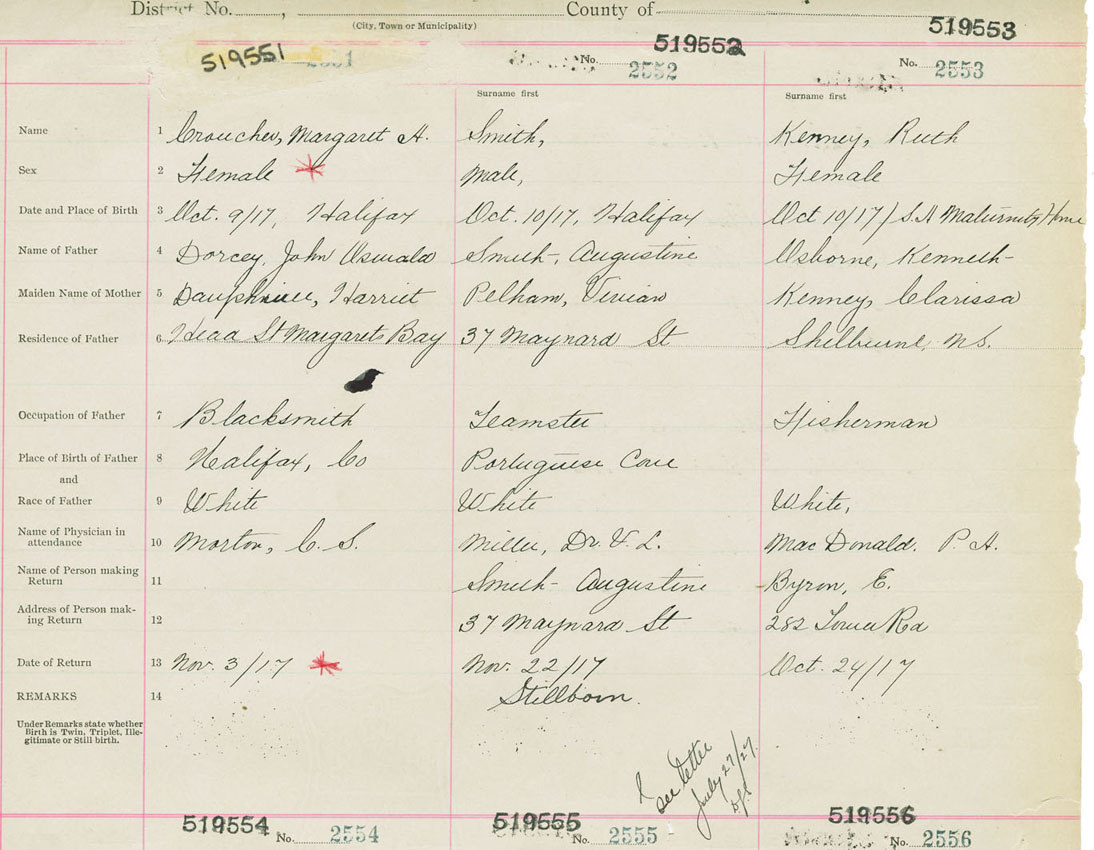 District No. , County of
(City, Town or Municipality)
519551 2551 No. 519552 2552 No. 519553 2553
Surname first Surname first
Name 1 Croucher, Margaret A. Smith, Kenney, Ruth
Sex 2 Female Male, Female
Date and Place of Birth 3 Oct. 9/17, Halifax Oct. 10/17, Halifax Oct 10/17 / S.A Maternity Home
Name of Father 4 Dorcey, John Oswald Smith, Augustine Osborne, Kenneth
Maiden Name of Mother 5 Dauphinee, Harriet Pelham, Vivian Kenney, Clarissa
Residence of Father 6 Head St Margarets Bay 37 Maynard St Shelburne, N.S.
Occupation of Father 7 Blacksmith Teamster Fisherman
Place of Birth of Father 8 Halifax, Co Portuguese Cove
and
Race of Father 9 White White White,
Name of Physician in
attendance 10 Morton, C. S. Miller, Dr. V. L. MacDonald. P. A.
Name of Person making
Return 11 Smith Augustine Byron, E.
Address of Person mak-
ing Return 12 37 Maynard St 282 Tower Rd
Date of Return 13 Nov. 3/17 Nov. 22/17 Oct. 24/17
REMARKS 14 Stillborn.
Under Remarks state whether
Birth is Twin, Triplet, Ille-
gitimate or Still birth.
see letter
July 27/27
519554 No. 2554 519555 No. 2555 519556 No. 2556